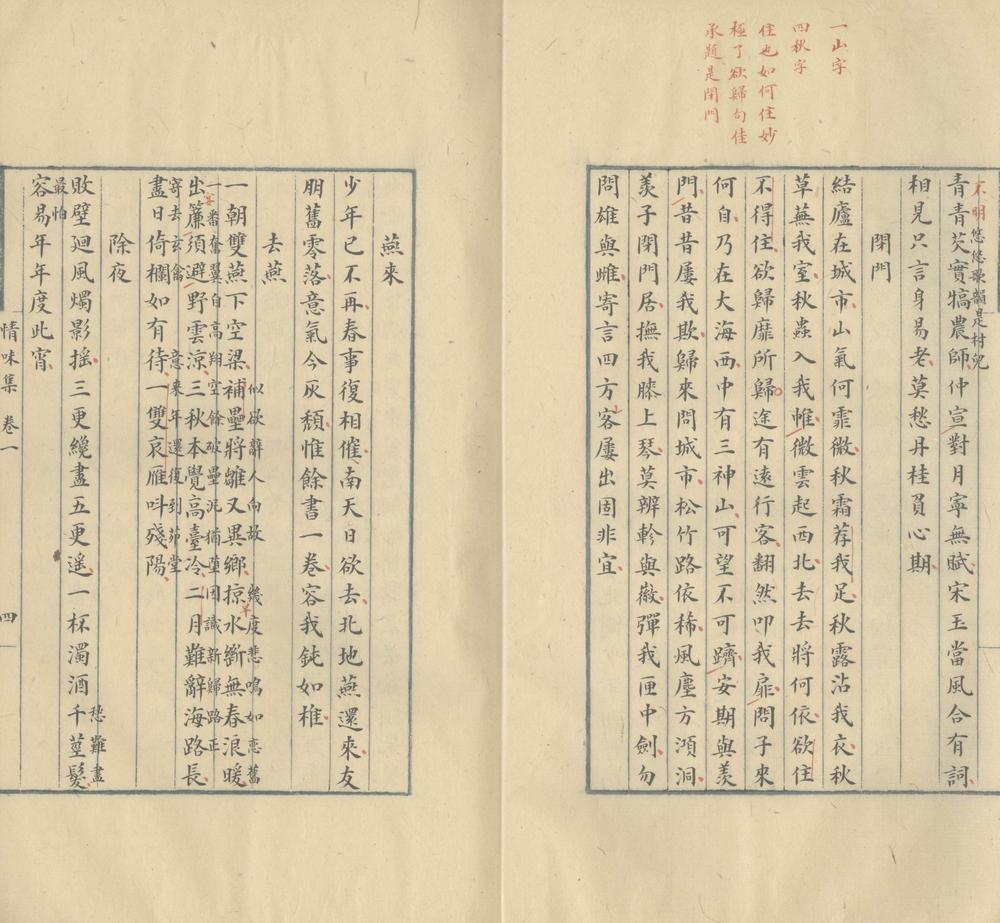 一山字
四秋字
住也如何住妙
極了欲歸句佳
承題是閉門
不明悠悠歌韻是村兒
青青芡實犒農師仲宣對月寧無賦宋玉當風合有詞
相見只言身易老莫愁丹桂負心期
閉門
結廬在城市山氣何霏微秋霜荐我足秋露沾我衣秋
草蕪我室秋蟲入我帷微雲起西北去去將何依欲住
不得住欲歸靡所歸途有遠行客翻然叩我扉問子來
何自乃在大海西中有三神山可望不可躋安期與羨
門昔昔屢我欺歸來問城市松竹路依稀風塵方澒洞
羨子閉門居撫我膝上琴莫辨軫與徽彈我匣中劍勿
問雄與雌寄言四方客屢出固非宜
燕來
少年已不再春事復相催南天日欲去北地燕還來友
朋舊零落意氣今灰頹惟餘書一卷容我鈍如椎
去燕
似欲辭人向故 幾度悲鳴如戀舊
一朝雙燕下空梁補壘將雛又異鄉掠水斷無春浪暖
一番奮翼自高翔空餘破壘泥猶 因識新歸路正
出簾須避野雲涼三秋本覺高臺冷二月難辭海路長
寄去玄禽 意來年還復到茆堂
盡日倚欄如有待一雙哀雁呌殘陽
除夜
愁難盡
敗壁迴風燭影搖三更纔盡五更遙一杯濁酒千莖髮
最怕
容易年年度此宵
情味集 卷一 四